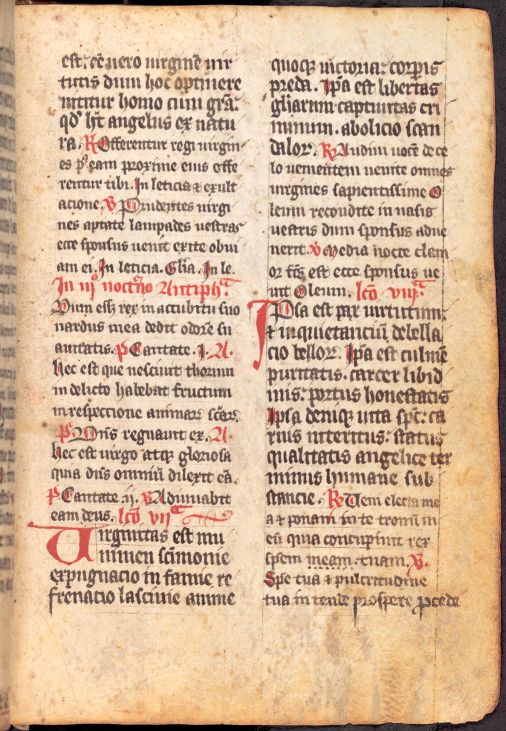 est. ce vero virgine vir
tutis dum hoc optinere
nititur homo cum gra.
qd ht angelus ex natu
ra. R Offerentur regi virgin
es p eam proxime eius offe
rentur tibi. In leticia et exult
acione. V Prudentes virgi
nes aptate lampades vestras
ecce sponsus venit exite obui
am ei. In leticia. Glia. In le.
In iii noctno Antiph
Dum esset rex in accubitu suo
nardus mea dedit odore su
auitatis. P Cantate. i. A.
hec est que nesciuit thorum
in delicto habebit fructum
in respectione animar scar.
P. Dns regnauit ex. A.
hec est virgo atq gloriosa
qua dns omniu dilexit ea.
P Cantate. ii. V Adiuuabit
eam deus. lco vii
Virginitas est mu
nimen scimonie
expugnacio infamie re
frenacio lasciuie anime
quoq victoria. corpis
preda. Ipa est libertas
gliarum captiuitas cri
minum. abolicio scan
dalor. R Audiui voce de ce
lo venientem venite omnes
virgines sapientissime O
leum recondite in vasis
vestris dum sponsus adue
nerit. V Media nocte clam
or fcs est ecce sponsus ve
nit Oleum. lco viii
Ipsa est pax virtutum
et inquietancium debella
cio bellor. Ipa est culme
puritatis. carcer libid
inis. portus honestatis
Ipsa deniq vita spc. ca
rnis interitus. status
qualitatis angelice ter
minus humane sub
stancie. R Veni electa me
a et ponam in te tronu m
eu quia concupiuit rex
spem meam. tuam. V.
Spe tua et pulcritudine
tua intende prospere pcede